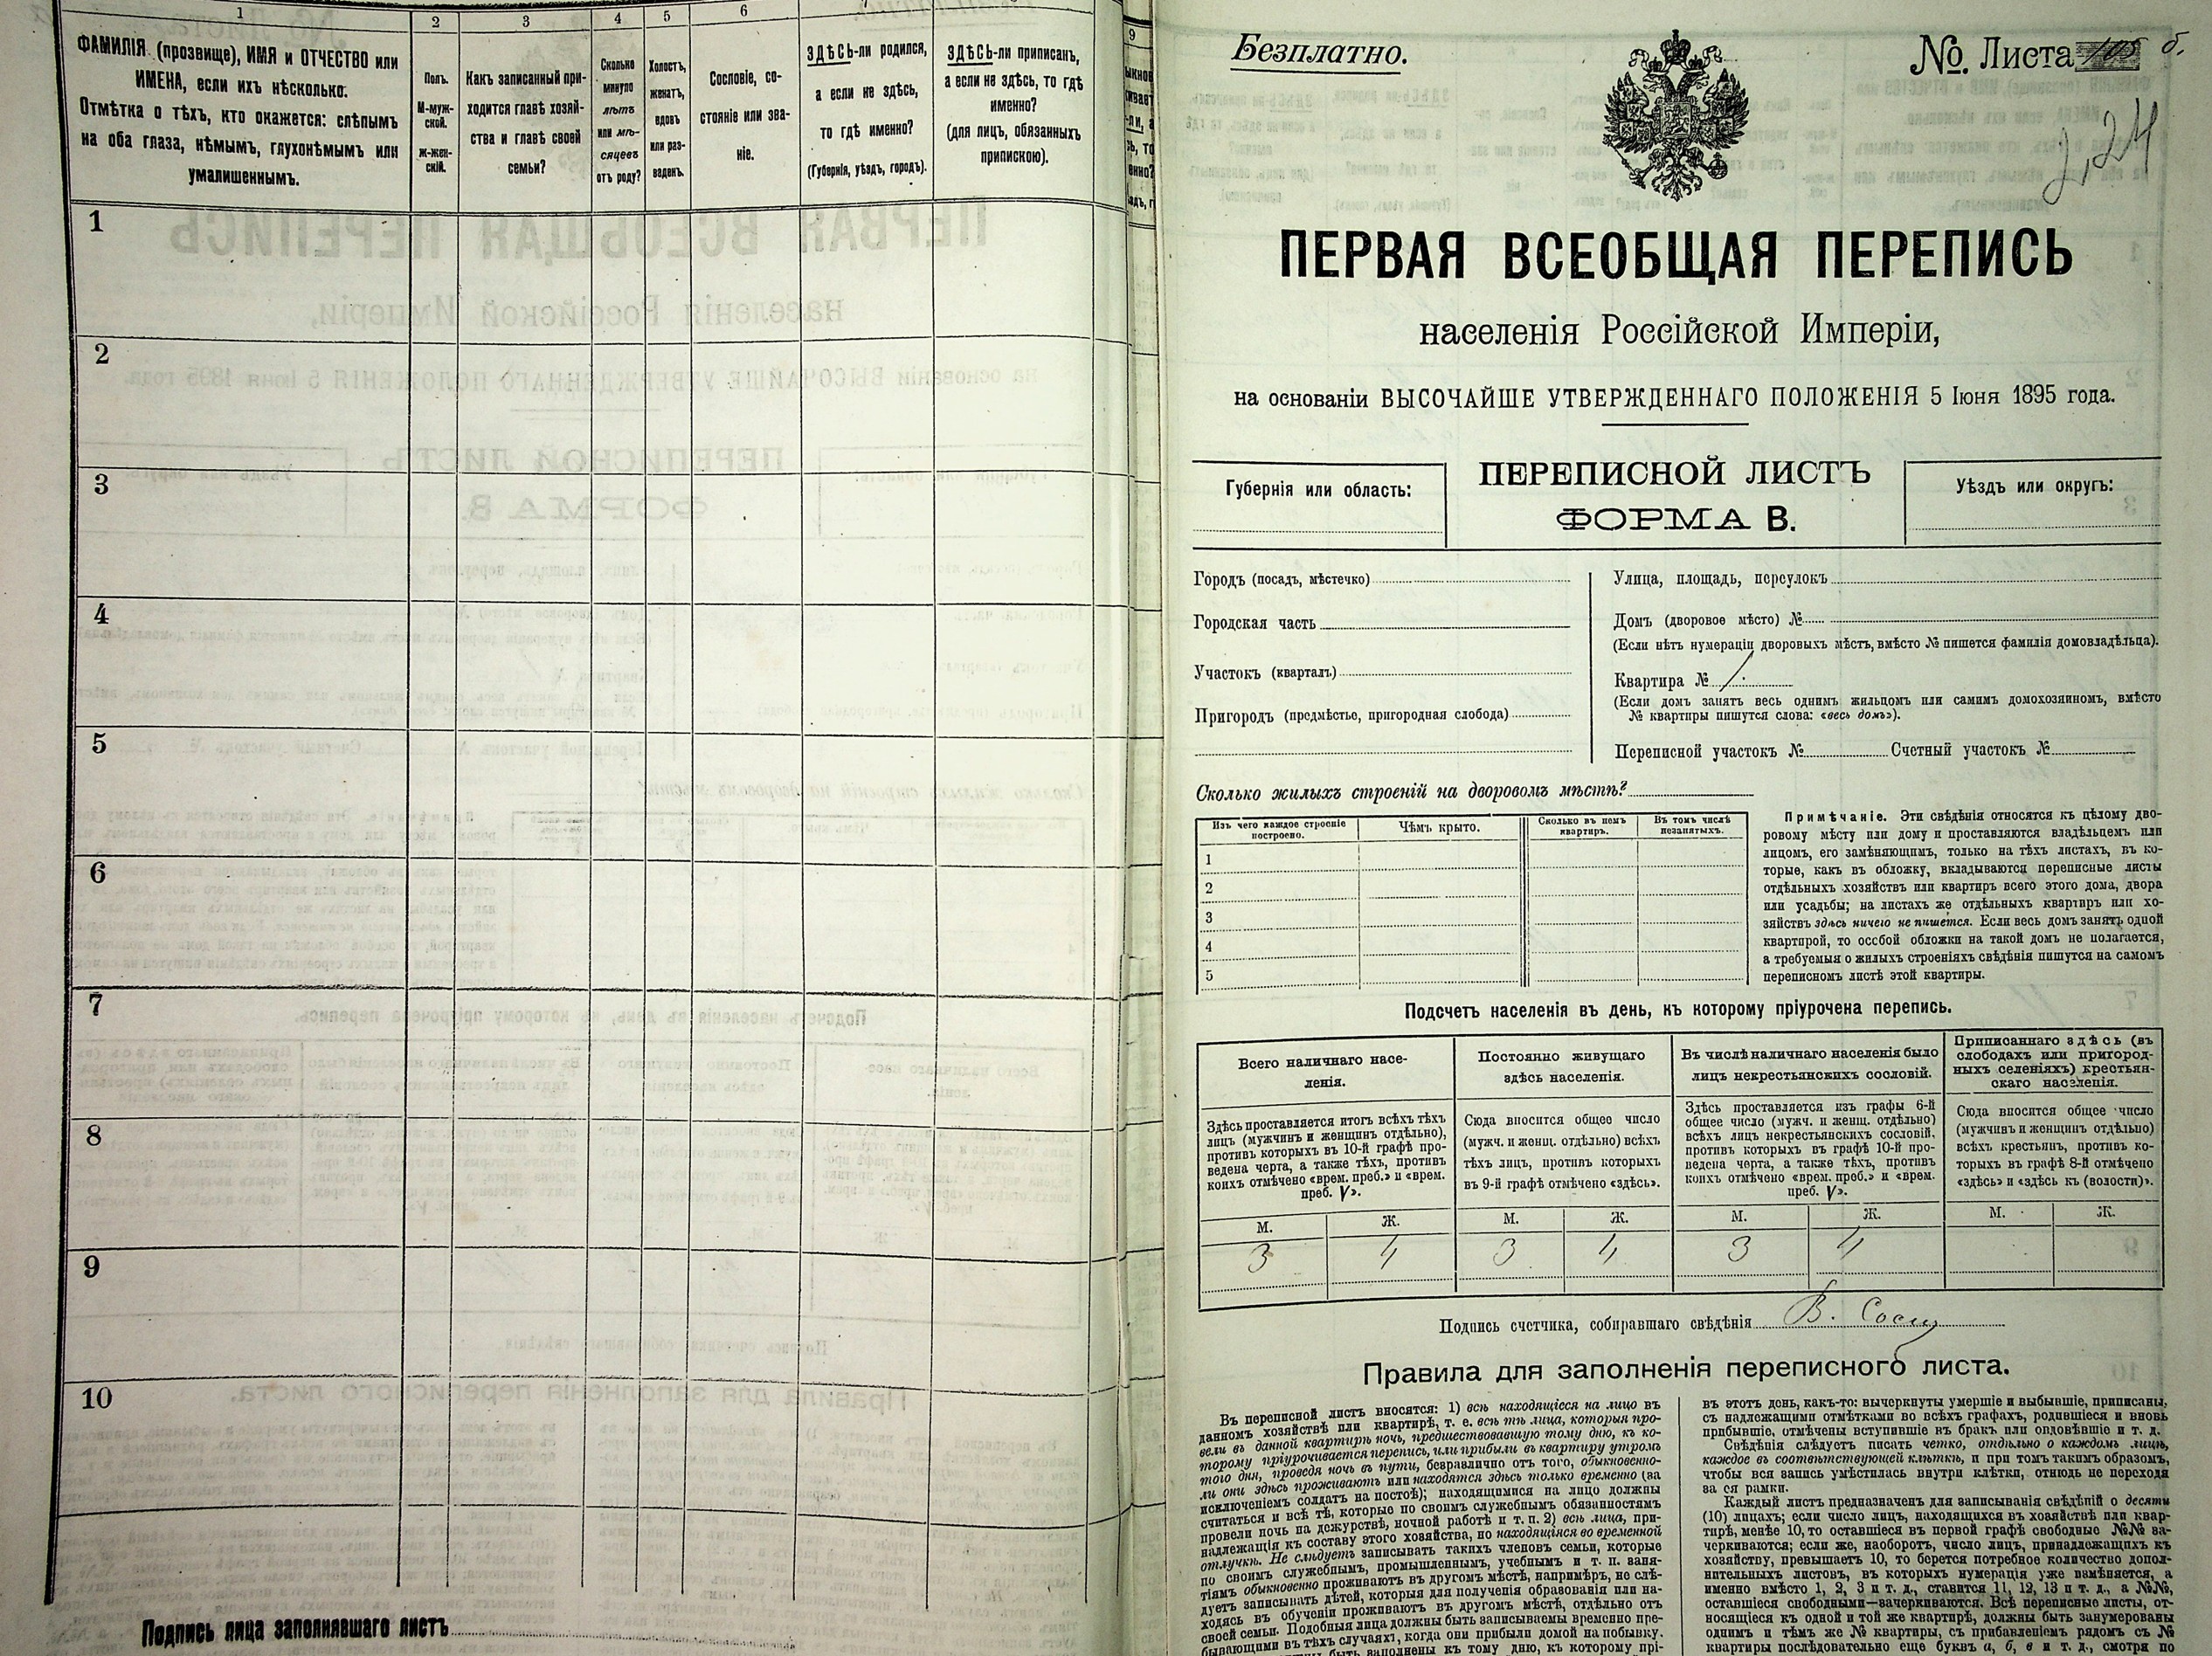 1
2
3
4
5
6
ФАМИЛІЯ (прозвище), ИМЯ и ОТЧЕСТВО или
ИМЕНА, если ихъ нѣсколько.
Отмѣтка о тѣхъ, кто окажется: слѣпымъ
на оба глаза, нѣмымъ, глухонѣмымъ или
умалишеннымъ.
Полъ.
М-муж-
ской.
ж-жен-
скій.
Какъ записанный при-
ходится главѣ хозяй-
ства и главѣ своей
семьи?
Сколько
минуло
лѣтъ
или мѣ-
сяцевъ
отъ роду?
Холостъ,
женатъ,
вдовъ
или раз-
веденъ.
Сословіе, со-
стояніе или зва-
ніе.
ЗДѢСЬ-ли родился,
а если не здѣсь,
то гдѣ именно?
(Губернія, уѣздъ, городъ).
ЗДѢСЬ-ли приписанъ,
а если не здѣсь, то гдѣ
именно?
(для лицъ, обязанныхъ
припискою).
9
1
2
3
4
5
6
7
8
9
10
Подпись лица заполнявшаго листъ
Безплатно.
№ Листа 105 б.
ПЕРВАЯ ВСЕОБЩАЯ ПЕРЕПИСЬ
населенія Россійской Имперіи,
на основаніи ВЫСОЧАЙШЕ УТВЕРЖДЕННАГО ПОЛОЖЕНІЯ 5 Іюня 1895 года.
Губернія или область:
ПЕРЕПИСНОЙ ЛИСТЪ
ФОРМА В.
Уѣздъ или округъ:
Городъ (посадъ, мѣстечко)
Городская часть
Участокъ (кварталъ)
Пригородъ (предмѣстье, пригородная слобода)
Улица, площадь, переулокъ
Домъ (дворовое мѣсто) №
(Если нѣтъ нумераціи дворовыхъ мѣстъ, вмѣсто № пишется фамилія домовладѣльца).
Квартира № 1.
(Если домъ занятъ весь однимъ жильцомъ или самимъ домохозяиномъ, вмѣсто
№ квартиры пишутся слова: «весь домъ»).
Переписной участокъ № Счетный участокъ №
Сколько жилыхъ строеній на дворовомъ мѣстѣ?
Изъ чего каждое строеніе
построено.
Чѣмъ крыто.
Сколько въ немъ
квартиръ.
Въ томъ числѣ
незанятыхъ.
1
2
3
4
5
Примѣчаніе. Эти свѣдѣнія относятся къ цѣлому дво-
ровому мѣсту или дому и проставляются владѣльцемъ или
лицомъ, его замѣняющимъ, только на тѣхъ листахъ, въ ко-
торые, какъ въ обложку, вкладываются переписные листы
отдѣльныхъ хозяйствъ или квартиръ всего этого дома, двора
или усадьбы; на листахъ же отдѣльныхъ квартиръ или хо-
зяйствъ здѣсь ничего не пишется. Если весь домъ занятъ одной
квартирой, то особой обложки на такой домъ не полагается,
а требуемыя о жилыхъ строеніяхъ свѣдѣнія пишутся на самомъ
переписномъ листѣ этой квартиры.
Подсчетъ населенія въ день, къ которому пріурочена перепись.
Всего наличнаго насе-
ленія.
Постоянно живущаго
здѣсь населенія.
Въ числѣ наличнаго населенія было
лицъ некрестьянскихъ сословій.
Приписаннаго здѣсь (въ
слободахъ или пригород-
ныхъ селеніяхъ) крестьян-
скаго населенія.
Здѣсь проставляется итогъ всѣхъ тѣхъ
лицъ (мужчинъ и женщинъ отдѣльно),
противъ которыхъ въ 10-й графѣ про-
ведена черта, а также тѣхъ, противъ
коихъ отмѣчено «врем. преб.» и «врем.
преб. V».
Сюда вносится общее число
(мужч. и женщ. отдѣльно) всѣхъ
тѣхъ лицъ, противъ которыхъ
въ 9-й графѣ отмѣчено «здѣсь».
Здѣсь проставляется изъ графы 6-й
общее число (мужч. и женщ. отдѣльно)
всѣхъ лицъ некрестьянскихъ сословій,
противъ которыхъ въ графѣ 10-й про-
ведена черта, а также тѣхъ, противъ
коихъ отмѣчено «врем. преб.» и «врем.
преб. V».
Сюда вносится общее число
(мужчинъ и женщинъ отдѣльно)
всѣхъ крестьянъ, противъ ко-
торыхъ въ графѣ 8-й отмѣчено
«здѣсь» и «здѣсь къ (волости)».
М. Ж. М. Ж. М. Ж. М. Ж.
3 4 3 4 3 4
Подпись счетчика, собиравшаго свѣдѣнія В.
Правила для заполненія переписного листа.
Въ переписной листъ вносятся: 1) всѣ находящіеся на лицо въ
данномъ хозяйствѣ или квартирѣ, т. е. всѣ тѣ лица, которыя про-
вели въ данной квартирѣ ночь, предшествовавшую тому дню, къ ко-
торому пріурочивается перепись, или прибыли въ квартиру утромъ
того дня, проведя ночь въ пути, безразлично отъ того, обыкновенно-
ли они здѣсь проживаютъ или находятся здѣсь только временно (за
исключеніемъ солдатъ на постоѣ); находящимися на лицо должны
считаться и всѣ тѣ, которые по своимъ служебнымъ обязанностямъ
провели ночь на дежурствѣ, ночной работѣ и т. п. 2) всѣ лица, при-
надлежащія къ составу этого хозяйства, но находящіяся во временной
отлучкѣ. Не слѣдуетъ записывать такихъ членовъ семьи, которые
по своимъ служебнымъ, промышленнымъ, учебнымъ и т. п. заня-
тіямъ обыкновенно проживаютъ въ другомъ мѣстѣ, напримѣръ, не слѣ-
дуетъ записывать дѣтей, которыя для полученія образованія или на-
ходясь въ обученіи проживаютъ въ другомъ мѣстѣ, отдѣльно отъ
своей семьи. Подобныя лица должны быть записываемы временно пре-
бывающими въ тѣхъ случаяхъ, когда они прибыли домой на побывку.
быть заполнены къ тому дню, къ которому прі-
въ этотъ день, какъ-то: вычеркнуты умершіе и выбывшіе, приписаны,
съ надлежащими отмѣтками во всѣхъ графахъ, родившіеся и вновь
прибывшіе, отмѣчены вступившіе въ бракъ или овдовѣвшіе и т. д.
Свѣдѣнія слѣдуетъ писать четко, отдѣльно о каждомъ лицѣ,
каждое въ соотвѣтствующей клѣткѣ, и при томъ такимъ образомъ,
чтобы вся запись умѣстилась внутри клѣтки, отнюдь не переходя
за ея рамки.
Каждый листъ предназначенъ для записыванія свѣдѣній о десяти
(10) лицахъ; если число лицъ, находящихся въ хозяйствѣ или квар-
тирѣ, менѣе 10, то оставшіеся въ первой графѣ свободные №№ за-
черкиваются; если же, наоборотъ, число лицъ, принадлежащихъ къ
хозяйству, превышаетъ 10, то берется потребное количество допол-
нительныхъ листовъ, въ которыхъ нумерація уже измѣняется, а
именно вмѣсто 1, 2, 3 и т. д., ставится 11, 12, 13 и т. д., а №№,
оставшіеся свободными—зачеркиваются. Всѣ переписные листы, от-
носящіеся къ одной и той же квартирѣ, должны быть занумерованы
однимъ и тѣмъ же № квартиры, съ прибавленіемъ рядомъ съ №
квартиры послѣдовательно еще буквъ а, б, в и т. д., смотря по